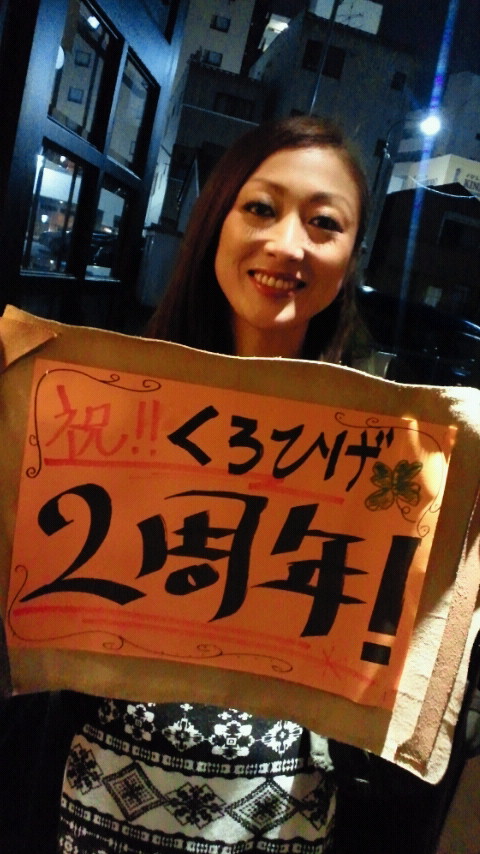 祝!!くろひげ
2周年!
KIN